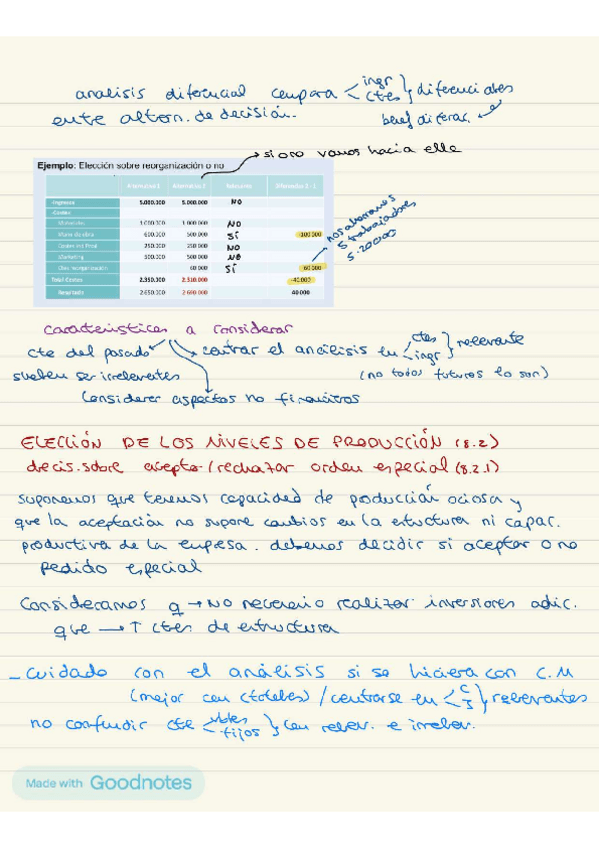 analisis diferencial compara < ingr
ctes } diferenciales
entre altern. de decisión.
benef diferenc.
→ si o no vamos hacia ella
Ejemplo: Elección sobre reorganización o no
Alternativa 1 Alternativa 2 Relevante Diferencia 2 - 1
-Ingresos 5.000.000 5.000.000 NO
-Costes
Materiales 1.000.000 1.000.000 NO
Mano de obra 600.000 500.000 SÍ -100 000
Costes ind fbnal 250.000 250.000 NO
Marketing 500.000 500.000 NO
Ctes reorganización 60 000 SÍ 60 000
Total Costes 2.350.000 2.310.000 -40 000
Resultado 2 650.000 2 690.000 40 000
nos ahorramos
5 trabajadores
5.20000
características a considerar
cte del pasado
suelen ser irrelevantes
centrar el análisis en < ctes
ingr } relevante
(no todos futuros lo son)
Considerar aspectos no financieros
ELECCIÓN DE LOS NIVELES DE PRODUCCIÓN (8.2)
decis. sobre aceptar/rechazar orden especial (8.2.1)
suponemos que tenemos capacidad de producción ociosa y
que la aceptación no supone cambios en la estructura ni capac.
productiva de la empresa. debemos decidir si aceptar o no
pedido especial
Consideramos q → NO necesario realizar inversiones adic.
que → ↑ ctes de estructura
- cuidado con el análisis si se hiciera con C.M
(mejor con ctotales) / centrarse en < C
I } relevantes
no confundir cte < vbles
fijos } con relev. e irrelev.
Made with Goodnotes